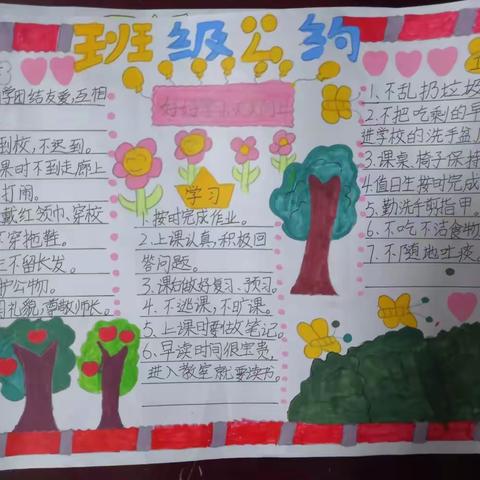 班级公约
好好学习 天天向上
学团结友爱,互相
到校,不迟到。
课时不到走廊上
打闹。
戴红领巾,穿校
穿拖鞋。
不留长发。
护公物。
礼貌,尊敬师长。
学习
1、按时完成作业。
2、上课认真,积极回
答问题。
3、课后做好复习、预习。
4、不逃课,不旷课。
5、上课时要做笔记。
6、早读时间很宝贵,
进入教室就要读书。
1、不乱扔垃圾
2、不把吃剩的早
进学校的洗手盆
3、课桌、椅子保持
4、值日生按时完成
5、勤洗手剪指甲。
6、不吃不洁食物
7、不随地吐痰。